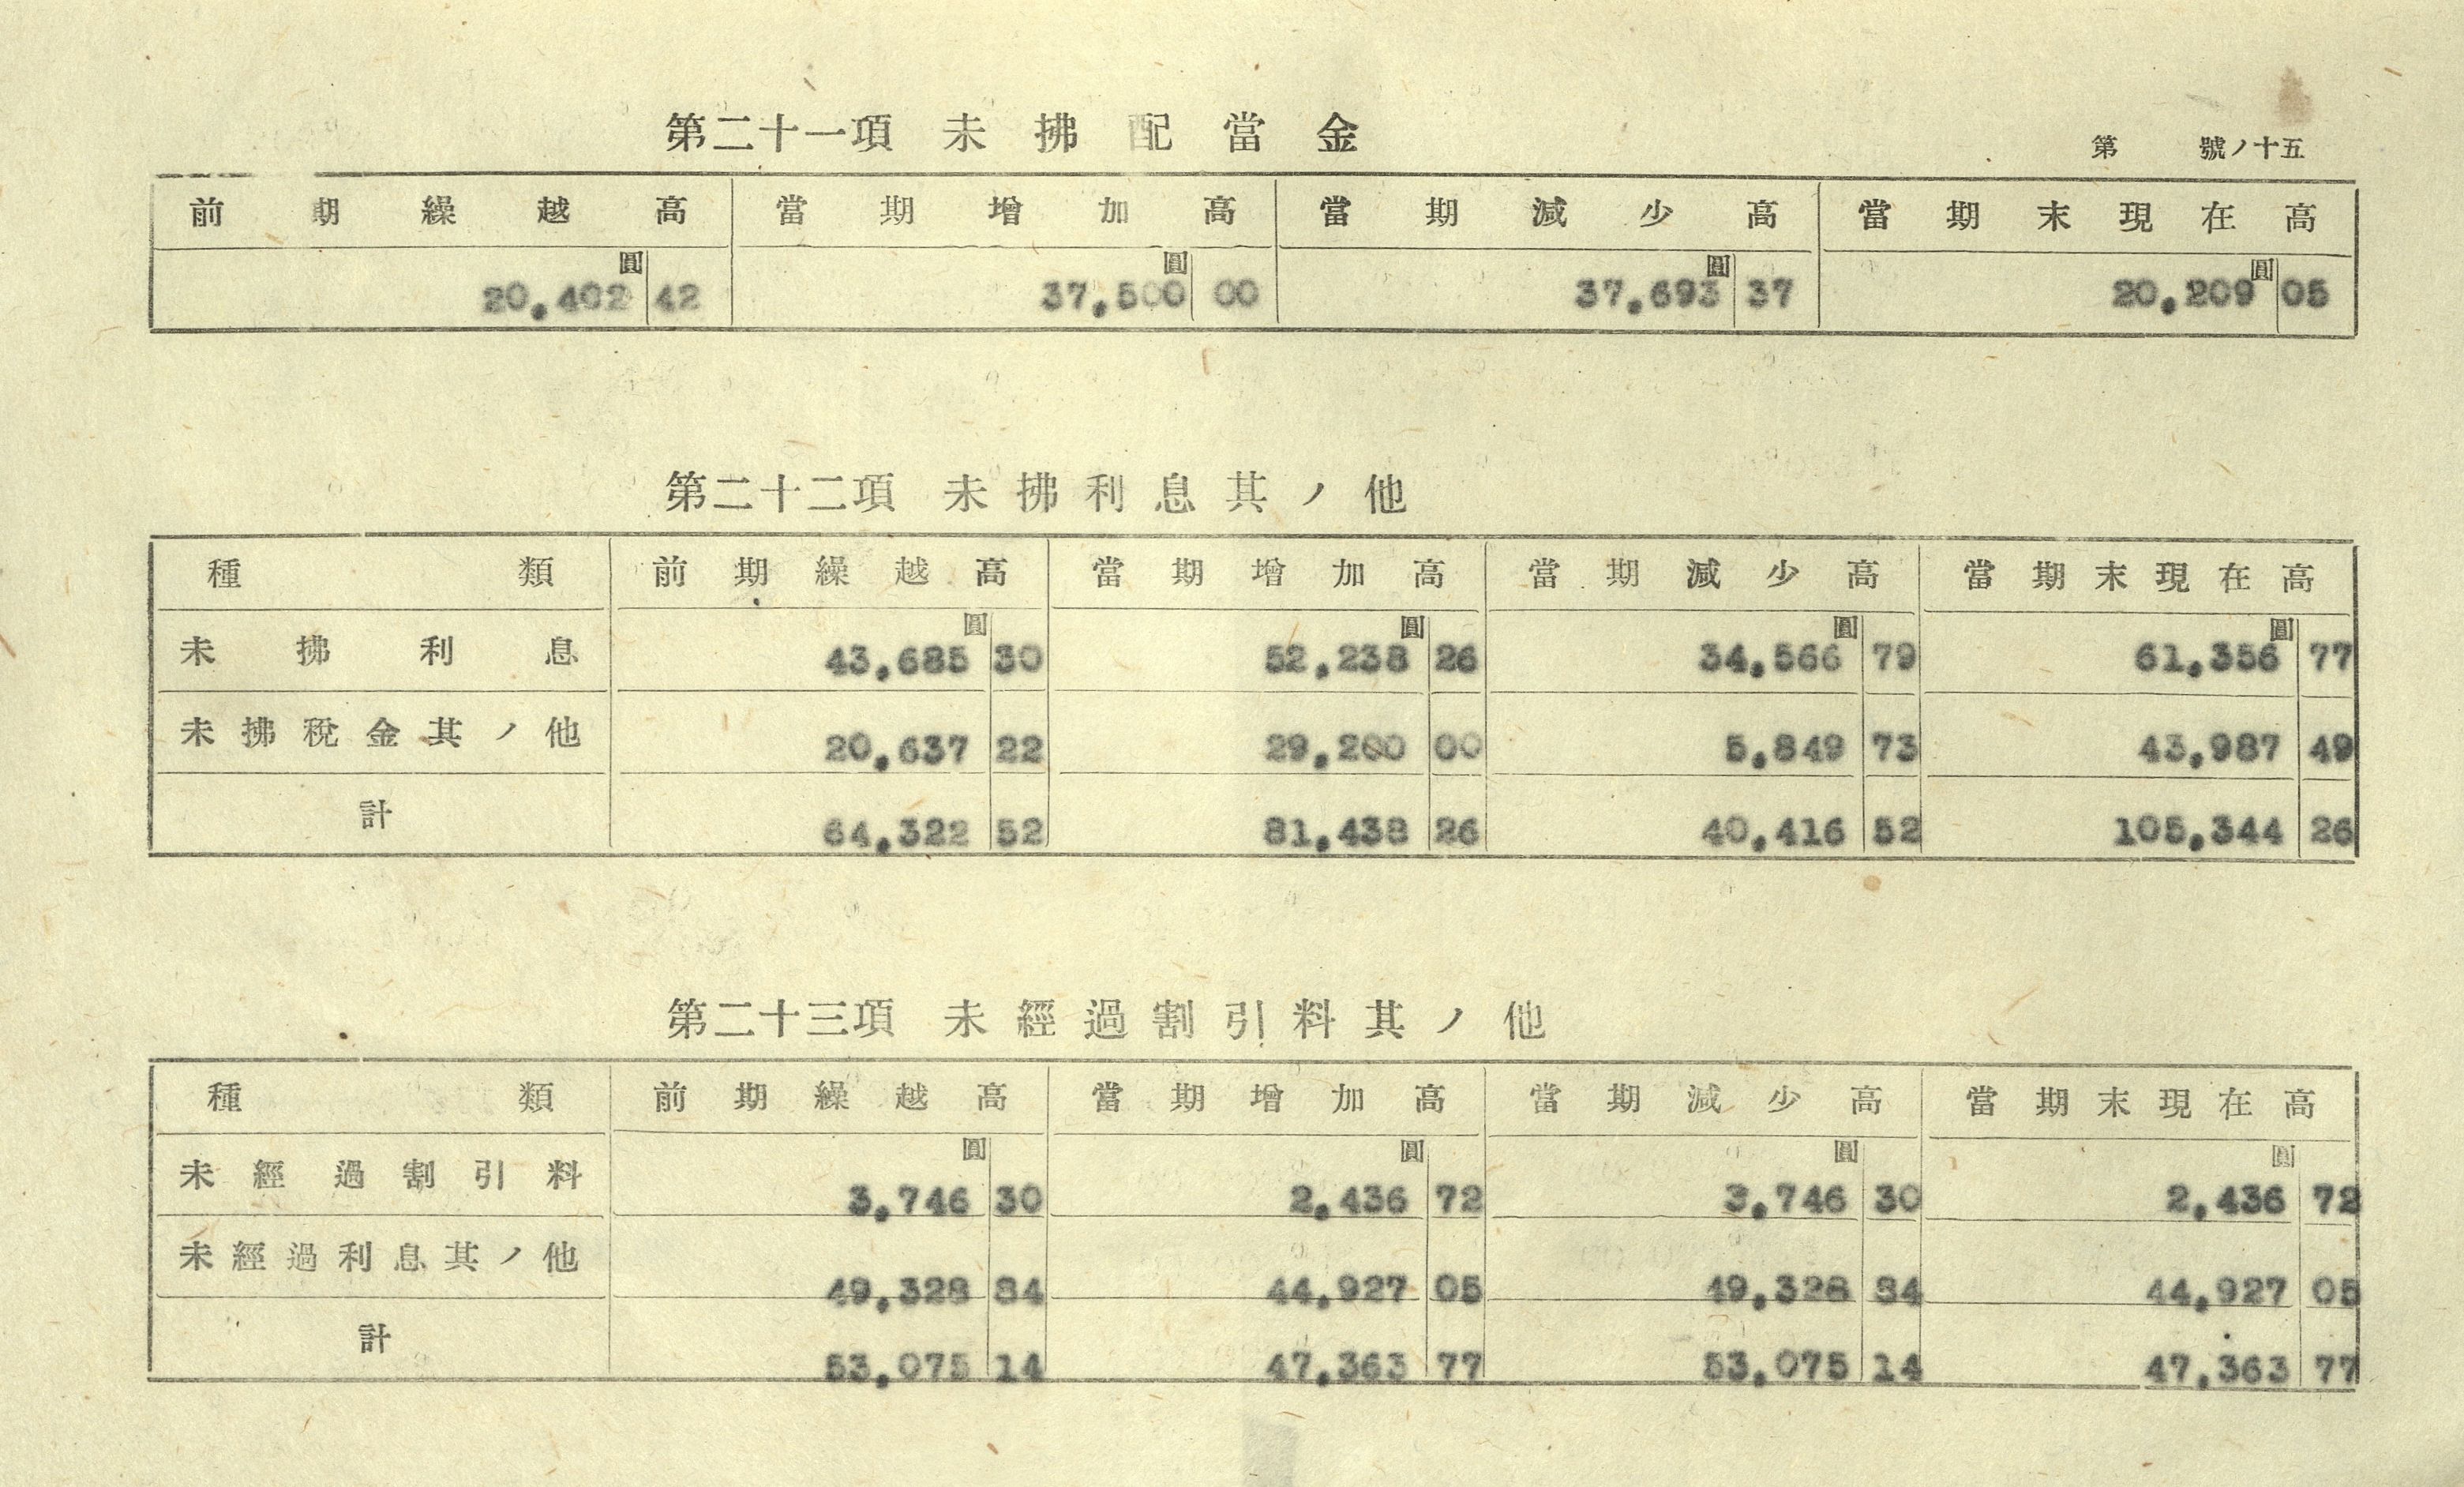 第二十一項 未拂配當金
第 號ノ十五
前期繰越高 當期增加高 當期減少高 當期末現在高
圓 圓 圓 圓
20,402 42 37,500 00 37,693 37 20,209 05
第二十二項 未拂利息其ノ他
種類 前期繰越高 當期增加高 當期減少高 當期末現在高
圓 圓 圓 圓
未拂利息 43,685 30 52,238 26 34,566 79 61,356 77
未拂稅金其ノ他 20,637 22 29,200 00 5,849 73 43,987 49
計 64,322 52 81,438 26 40,416 52 105,344 26
第二十三項 未經過割引料其ノ他
種類 前期繰越高 當期增加高 當期減少高 當期末現在高
圓 圓 圓 圓
未經過割引料 3,746 30 2,436 72 3,746 30 2,436 72
未經過利息其ノ他 49,328 84 44,927 05 49,328 84 44,927 05
計 53,075 14 47,363 77 53,075 14 47,363 77